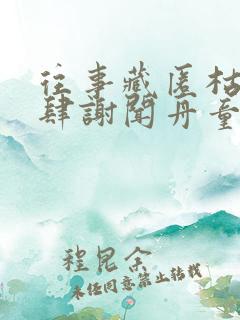 往事藏匿枯
肆謝聞丹童
程昆余
未经同意禁止转载